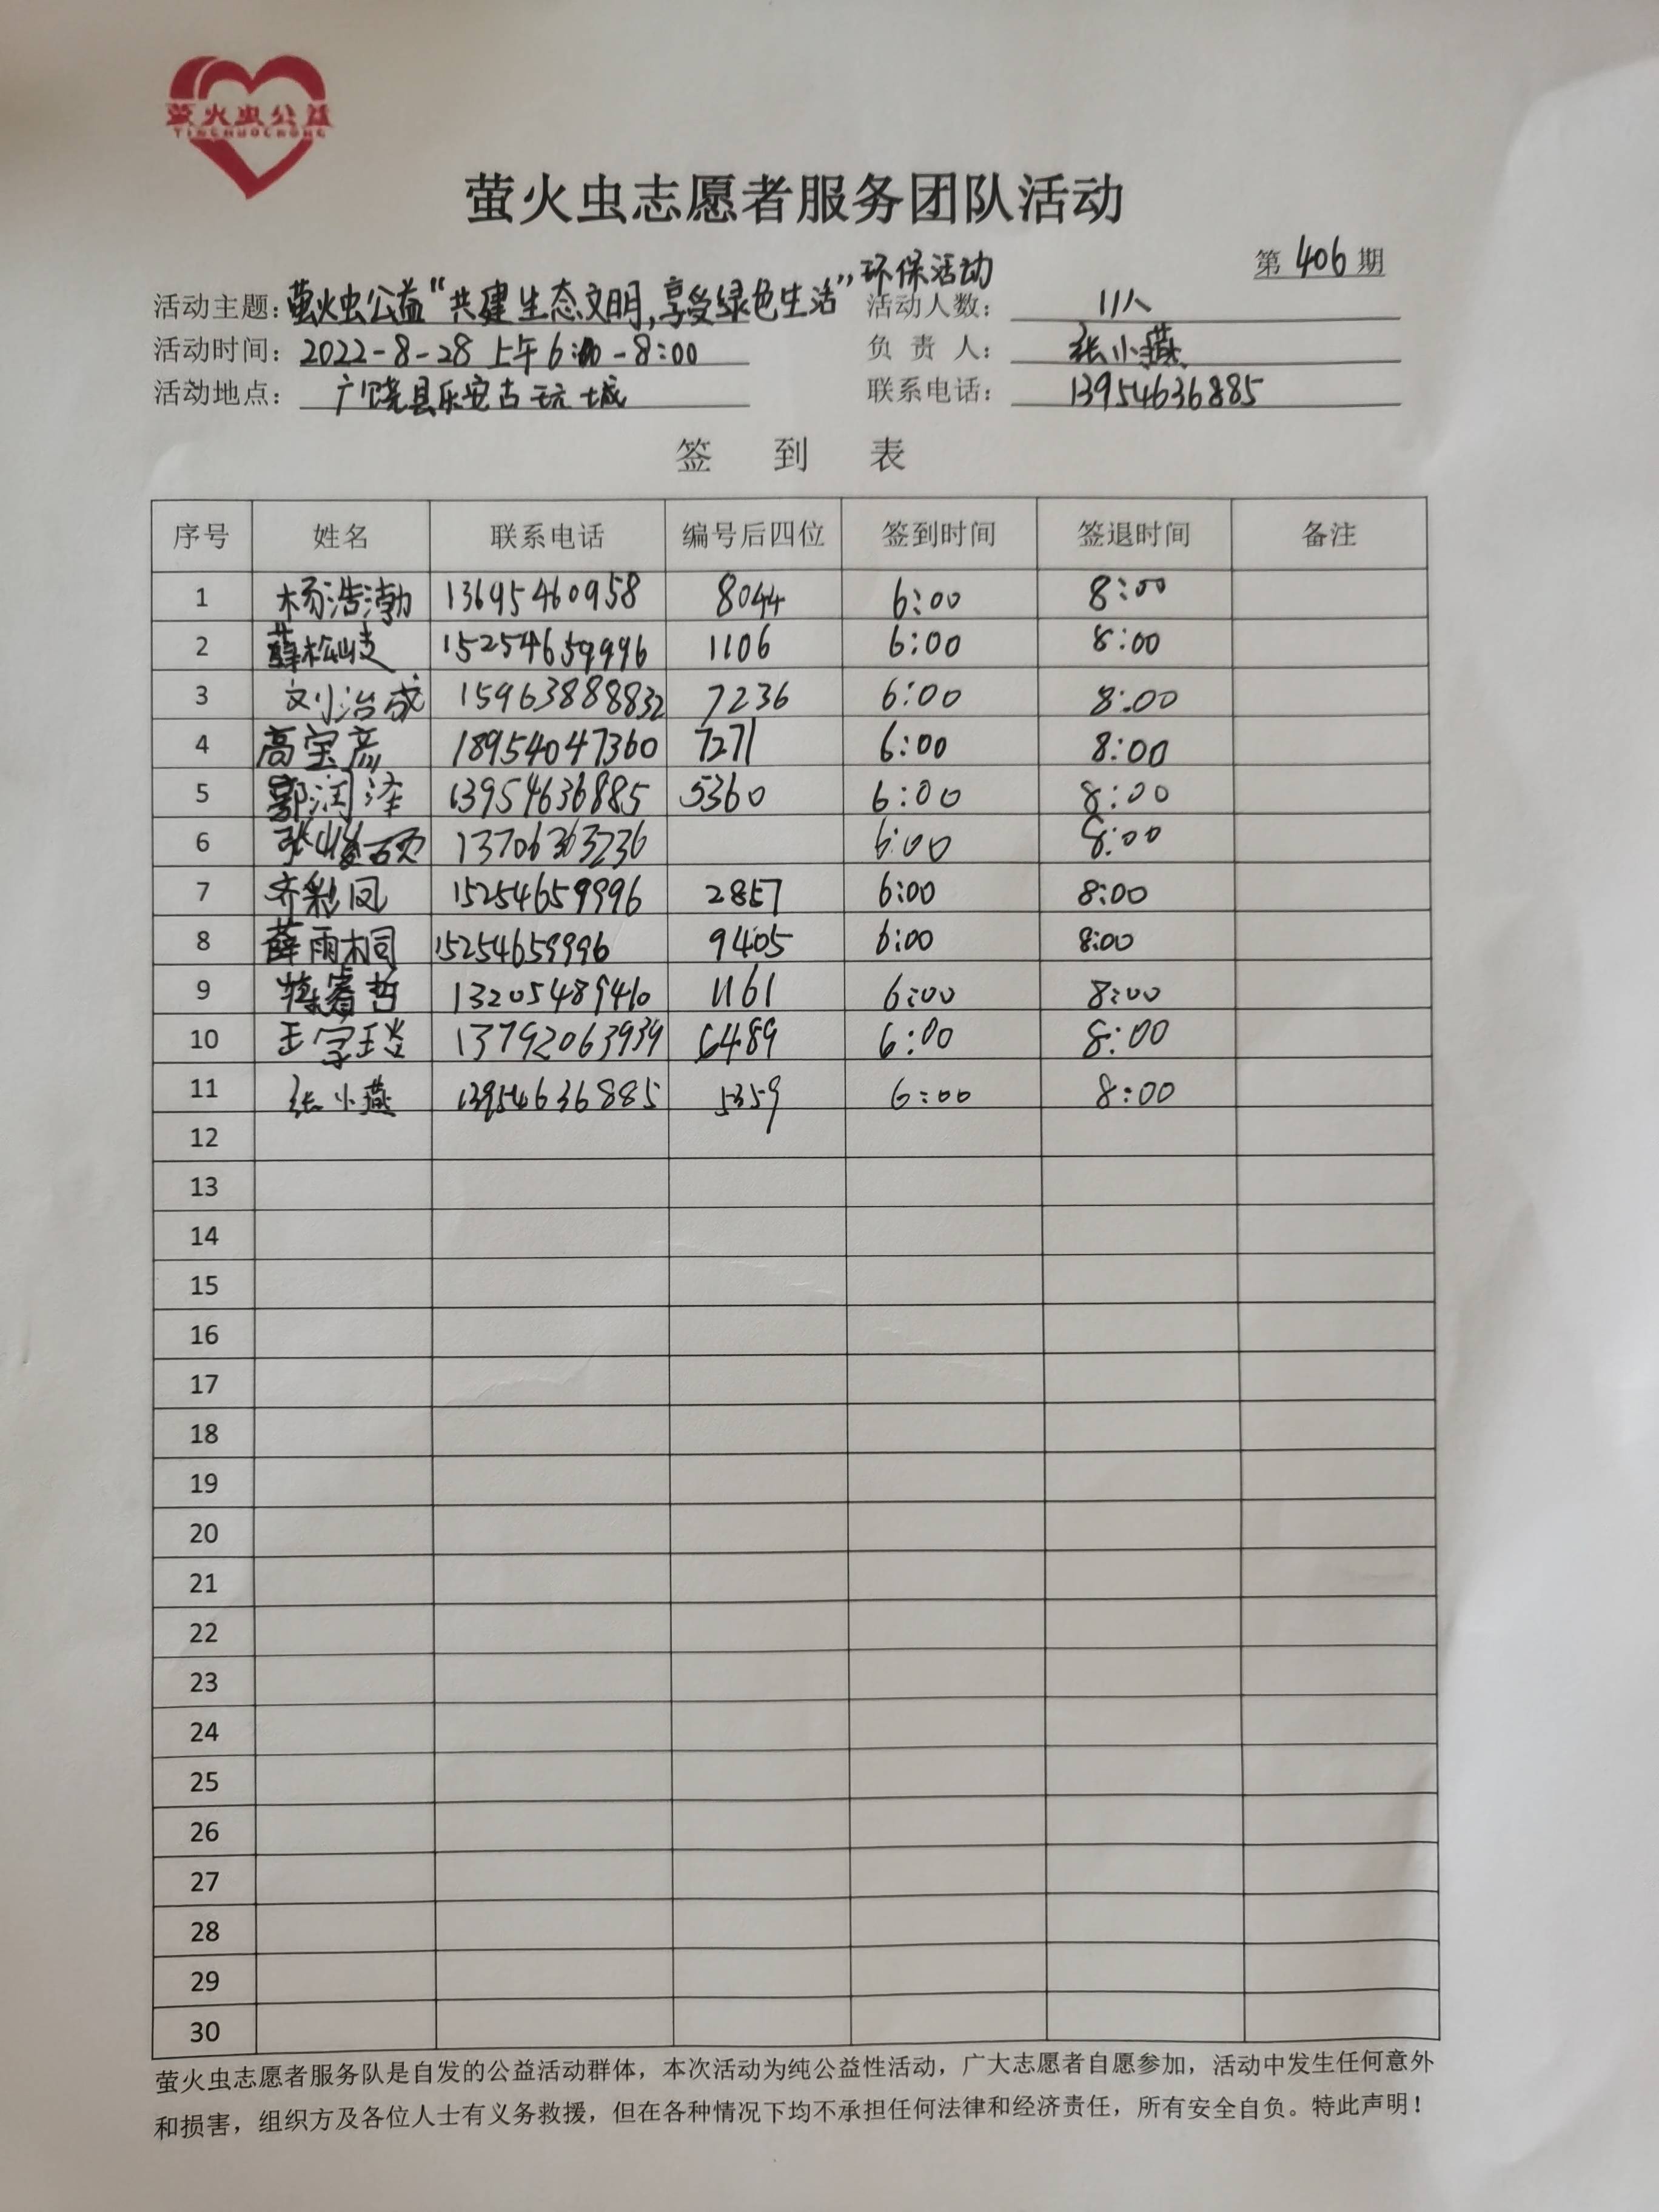 萤火虫公益
YINGHUOCHONG
萤火虫志愿者服务团队活动
第 406 期
活动主题：萤火虫公益“共建生态文明，享受绿色生活”环保活动 活动人数： 11人
活动时间：2022-8-28 上午6:00-8:00 负 责 人： 张小燕
活动地点： 广饶县乐安古玩城 联系电话： 13954636885
签 到 表
序号 姓名 联系电话 编号后四位 签到时间 签退时间 备注
1 杨浩渤 13695460958 8044 6:00 8:00
2 薛松岐 15254659996 1106 6:00 8:00
3 刘治成 15963888832 7236 6:00 8:00
4 高宝彦 18954047360 7271 6:00 8:00
5 郭润泽 13954636885 5360 6:00 8:00
6 13706363236 6:00 8:00
7 齐彩凤 15254659996 2857 6:00 8:00
8 薛雨桐 15254659996 9405 6:00 8:00
9 睿哲 13205489410 1161 6:00 8:00
10 王 13792063939 6489 6:00 8:00
11 张小燕 13954636885 5359 6:00 8:00
12
13
14
15
16
17
18
19
20
21
22
23
24
25
26
27
28
29
30
萤火虫志愿者服务队是自发的公益活动群体，本次活动为纯公益性活动，广大志愿者自愿参加，活动中发生任何意外
和损害，组织方及各位人士有义务救援，但在各种情况下均不承担任何法律和经济责任，所有安全自负。特此声明！